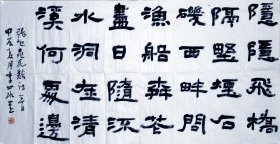 隱隱飛橋
隔野煙石
磯西畔問
漁船桃花
盡日隨流
水洞在清
溪何處邊
張旭桃花谿詩